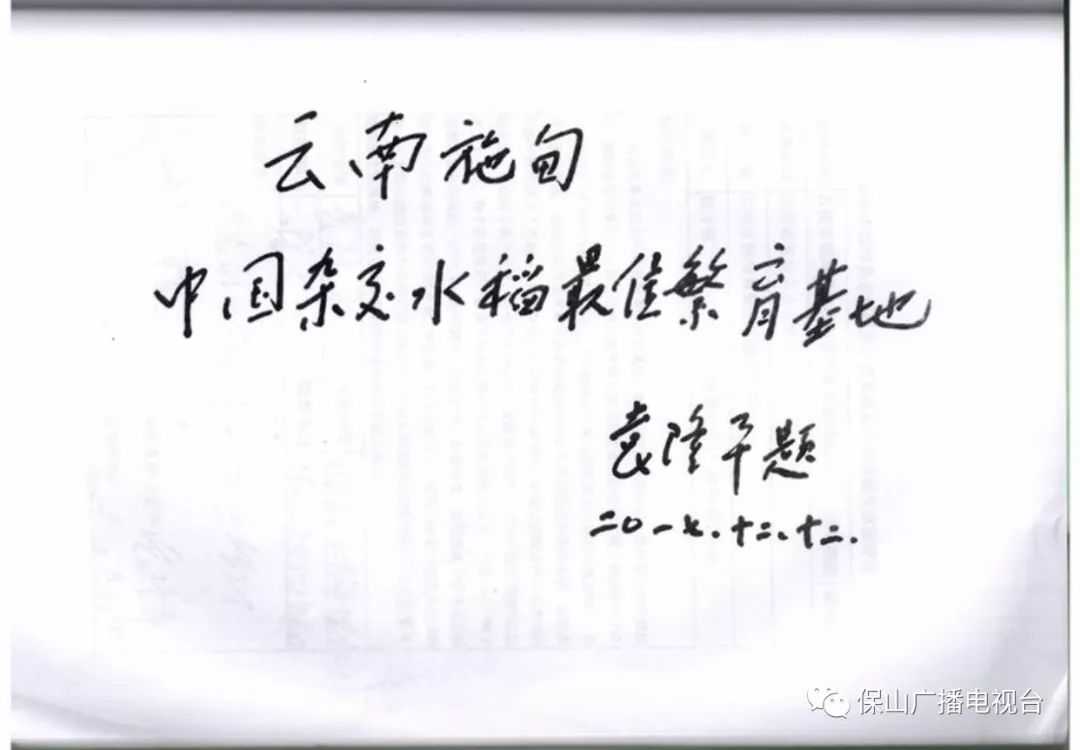 云南施甸
中国杂交水稻最佳繁育基地
袁隆平题
二〇一七.十二.十二.
保山广播电视台